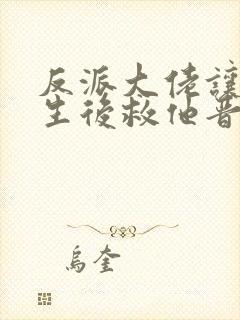 反派大佬讓
生後救他晋
烏奎